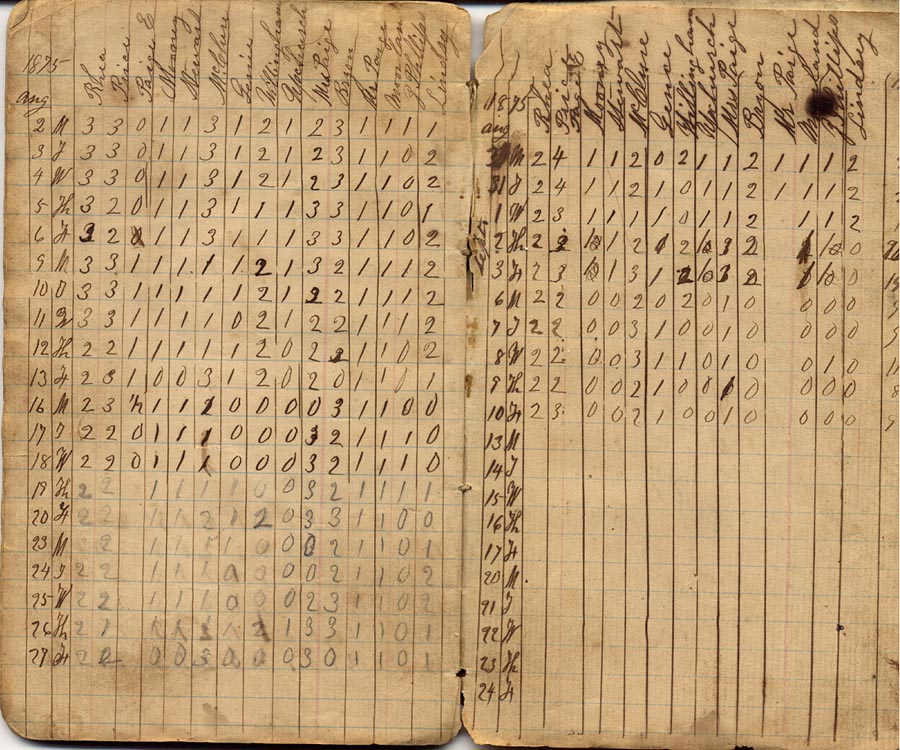 1875
Aug
Rhea Price Price E Mooney Stewart McClure Genie Mrs Paige Baron Mr Paige Phillips Lindsey
2 M 3 3 0 1 1 3 1 2 1 2 3 1 1 1 1
3 T 3 3 0 1 1 3 1 2 1 2 3 1 1 0 2
4 W 3 3 0 1 1 3 1 2 1 2 3 1 1 0 2
5 Th 3 2 0 1 1 3 1 1 1 3 3 1 1 0 1
6 F 3 2 0 1 1 3 1 1 1 3 3 1 1 0 2
9 M 3 3 1 1 1 1 1 2 1 3 2 1 1 1 2
10 T 3 3 1 1 1 1 1 2 1 2 2 1 1 1 2
11 W 3 3 1 1 1 1 0 2 1 2 2 1 1 1 2
12 Th 2 2 1 1 1 1 1 2 0 2 2 1 1 0 2
13 F 2 3 1 0 0 3 1 2 0 2 0 1 1 0 1
16 M 2 3 ½ 1 1 2 0 0 0 0 3 1 1 0 0
17 T 2 2 0 1 1 1 0 0 0 3 2 1 1 1 0
18 W 2 2 0 1 1 1 0 0 0 3 2 1 1 1 0
19 Th 2 2 1 1 1 1 0 0 3 2 1 1 1 1
20 F 2 2 1 1 2 1 2 0 3 3 1 1 0 0
23 M 2 2 1 1 1 1 0 0 0 2 1 1 0 1
24 T 2 2 1 1 1 0 0 0 0 2 1 1 0 2
25 W 2 2 1 1 1 0 0 0 2 3 1 1 0 2
26 Th 2 1 1 2 1 3 3 1 1 0 1
27 F 2 2 0 0 3 0 0 0 3 0 1 1 0 1
1875
Aug
Rhea Price Mooney Stewart McClure Genie Mrs Paige Baron Mr Paige Phillips Lindsey
M 2 4 1 1 2 0 2 1 1 2 1 1 1 2
31 T 2 4 1 1 2 1 0 1 1 2 1 1 1 2
Sept.
1 W 2 3 1 1 1 1 0 1 1 2 1 1 2
2 Th 2 3 1 2 0 2 3 2 0
3 F 2 3 1 3 1 2 3 2 0
6 M 2 2 0 0 2 0 2 0 1 0 0 0 0
7 T 2 2 0 0 3 1 0 0 1 0 0 0 0
8 W 2 2 0 0 3 1 1 0 1 0 0 1 0
9 Th 2 2 0 0 2 1 0 0 1 0 0 0 0
10 F 2 3 0 0 2 1 0 0 1 0 0 0 0
13 M
14 T
15 W
16 Th
17 F
20 M.
21 T
22 W
23 Th
24 F